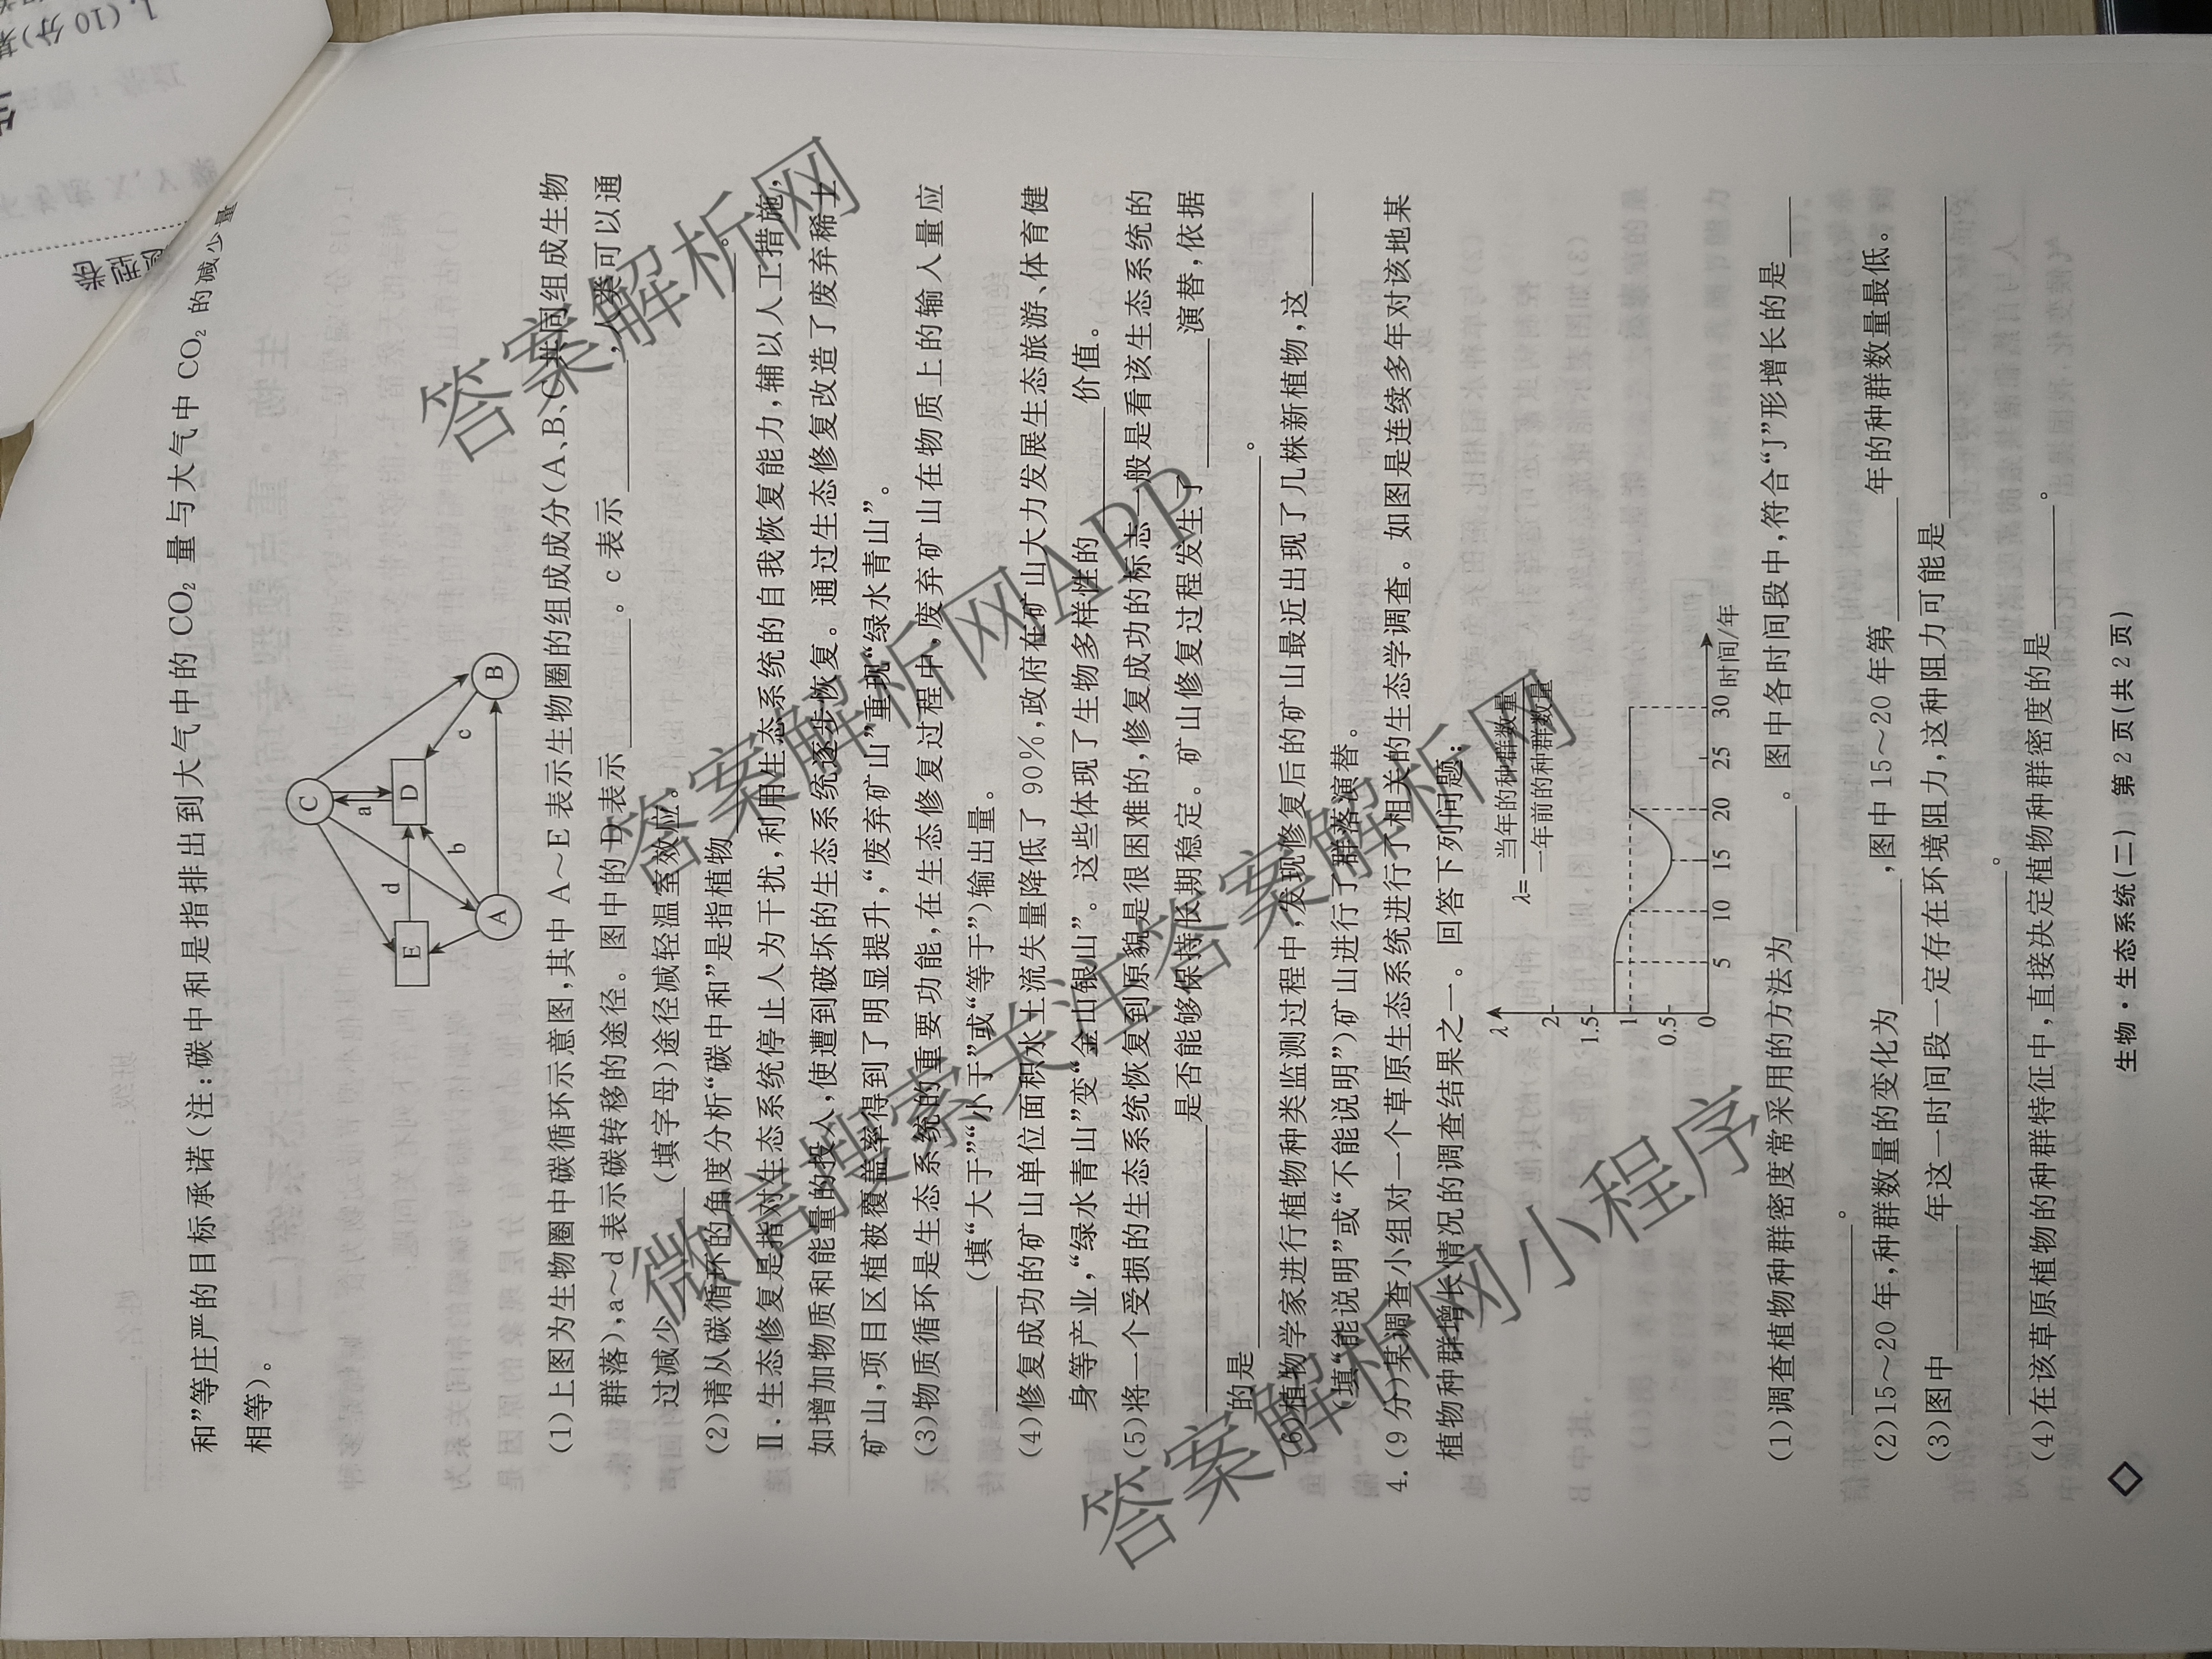 和”等庄严的目标承诺(注:碳中和是指排出到大气中的CO₂量与大气中CO₂的减少量
相等)。
C
a
D
d
b
c
E
A
B
(1)上图为生物圈中碳循环示意图,其中A～E表示生物圈的组成成分(A、B、C共同组成生物
群落),a～d表示碳转移的途径。图中的D表示________。c表示________,人类可以通
过减少________(填字母)途径减轻温室效应。
(2)请从碳循环的角度分析“碳中和”是指植物________。
Ⅱ.生态修复是指对生态系统停止人为干扰,利用生态系统的自我恢复能力,辅以人工措施,
如增加物质和能量的投入,使遭到破坏的生态系统逐步恢复。通过生态修复改造了废弃稀土
矿山,项目区植被覆盖率得到了明显提升,“废弃矿山”重现“绿水青山”。
(3)物质循环是生态系统的重要功能,在生态修复过程中,废弃矿山在物质上的输入量应
________(填“大于”“小于”或“等于”)输出量。
(4)修复成功的矿山单位面积水土流失量降低了90%,政府在矿山大力发展生态旅游、体育健
身等产业,“绿水青山”变“金山银山”。这些体现了生物多样性的________价值。
(5)将一个受损的生态系统恢复到原貌是很困难的,修复成功的标志一般是看该生态系统的
________是否能够保持长期稳定。矿山修复过程发生了________演替,依据
的是________。
(6)植物学家进行植物种类监测过程中,发现修复后的矿山最近出现了几株新植物,这________
(填“能说明”或“不能说明”)矿山进行了群落演替。
4.(9分)某调查小组对一个草原生态系统进行了相关的生态学调查。如图是连续多年对该地某
植物种群增长情况的调查结果之一。回答下列问题:
λ
λ=当年的种群数量/一年前的种群数量
2
1.5
1
0.5
0
5 10 15 20 25 30 时间/年
(1)调查植物种群密度常采用的方法为________。图中各时间段中,符合“J”形增长的是____
________。
(2)15～20年,种群数量的变化为________,图中15～20年第________年的种群数量最低。
(3)图中________年这一时间段一定存在环境阻力,这种阻力可能是________
________。
(4)在该草原植物的种群特征中,直接决定植物种群密度的是________。
生物·生态系统(二) 第2页(共2页)
答案解析网
微信搜索关注答案解析网
答案解析网APP
答案解析网小程序